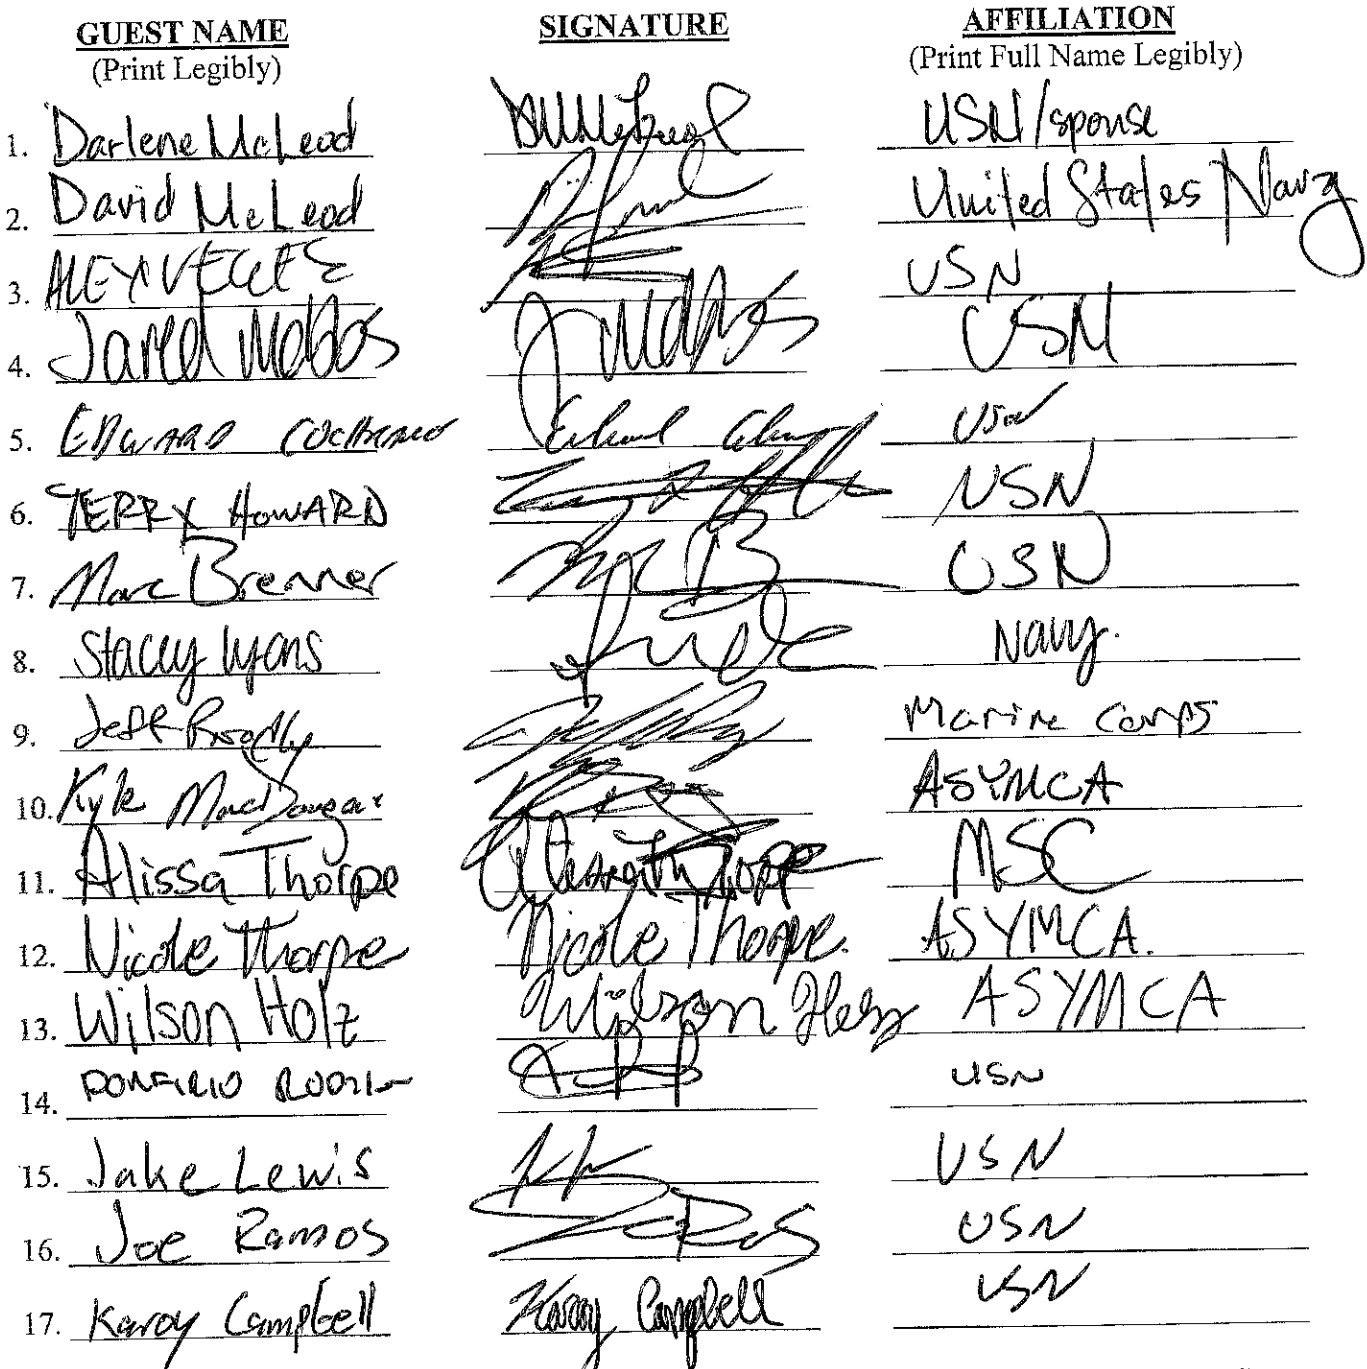 GUEST NAME SIGNATURE AFFILIATION
(Print Legibly) (Print Full Name Legibly)
1. Darlene McLeod USN/spouse
2. David McLeod United States Navy
3. ALEX USN
4. Jared Mobbs J Mobbs USN
5. EDWARD USN
6. TERRY HOWARD USN
7. Marc Brenner USN
8. Stacey Lyons Navy.
9. Jeff Marine Corps
10. Kyle MacDougal ASYMCA
11. Alissa Thorpe Thorpe MSC
12. Nicole Thorpe Nicole Thorpe. ASYMCA.
13. Wilson Holz Wilson Holz ASYMCA
14. PORFIRIO USN
15. Jake Lewis USN
16. Joe Ramos USN
17. Karoy Campbell Karoy Campbell USN